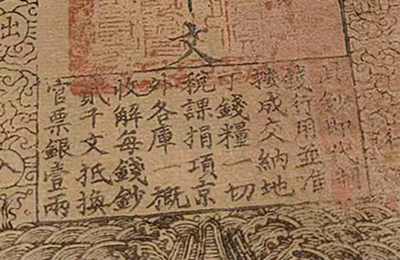 文
此鈔即代制
錢行用並准
按成交納地
丁錢糧一切
稅課捐項京
外各庫一概
收解每錢鈔
貳千文抵換
官票銀壹兩
出入